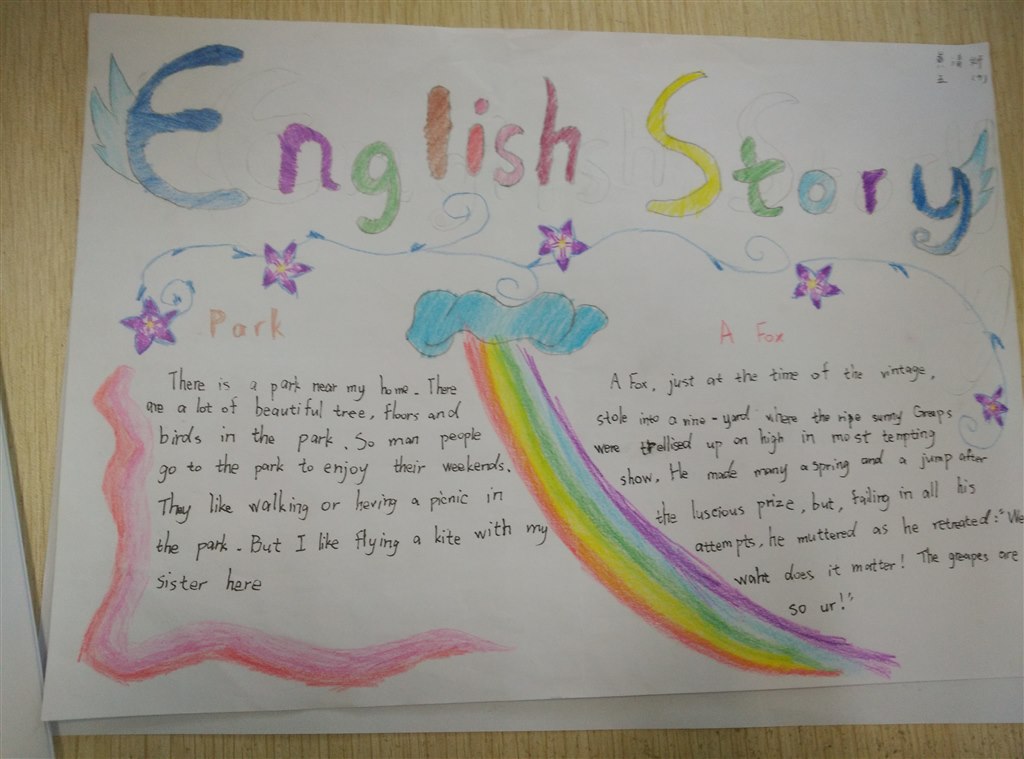 English Story
Park
There is a park near my home. There
are a lot of beautiful tree, floors and
birds in the park. So man people
go to the park to enjoy their weekends.
They like walking or hoving a picnic in
the park. But I like flying a kite with my
sister here
A Fox
A Fox, just at the time of the vintage,
stole into a vine-yard where the ripe sunny Greeps
were trellised up on high in most tempting
show. He made many a spring and a jump after
the luscious prize, but, failing in all his
attempts, he muttered as he retreated: "We
waht does it matter! The greapes are
so ur!"